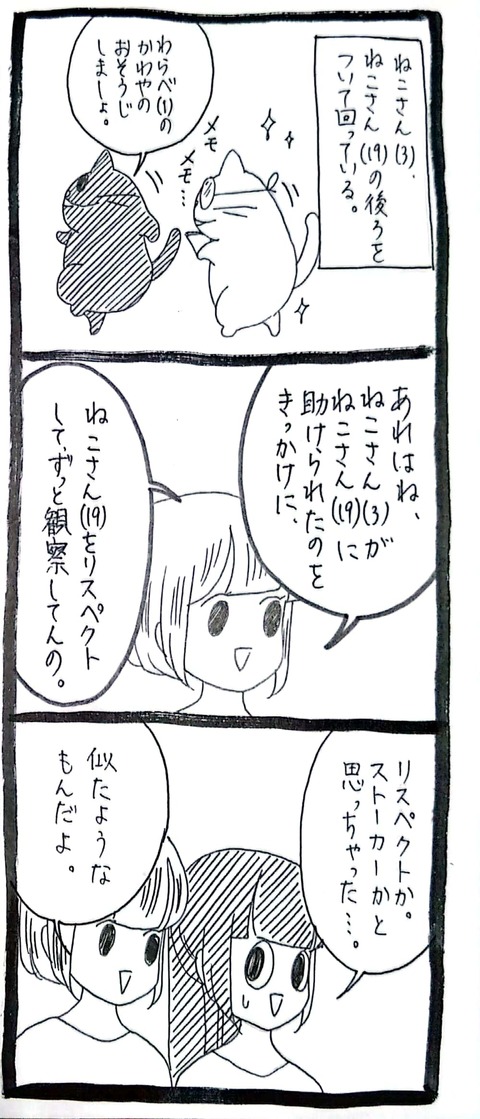 ねこさん(3)、
ねこさん(19)の後ろを
ついて回っている。
わらべ(1)の
かわやの
おそうじ
しましょ。
メモ
メモ…
あれはね、
ねこさん(3)が
ねこさん(19)に
助けられたのを
きっかけに、
ねこさん(19)をリスペクト
して、ずっと観察してんの。
リスペクトか。
ストーカーかと
思っちゃった…。
似たような
もんだよ。